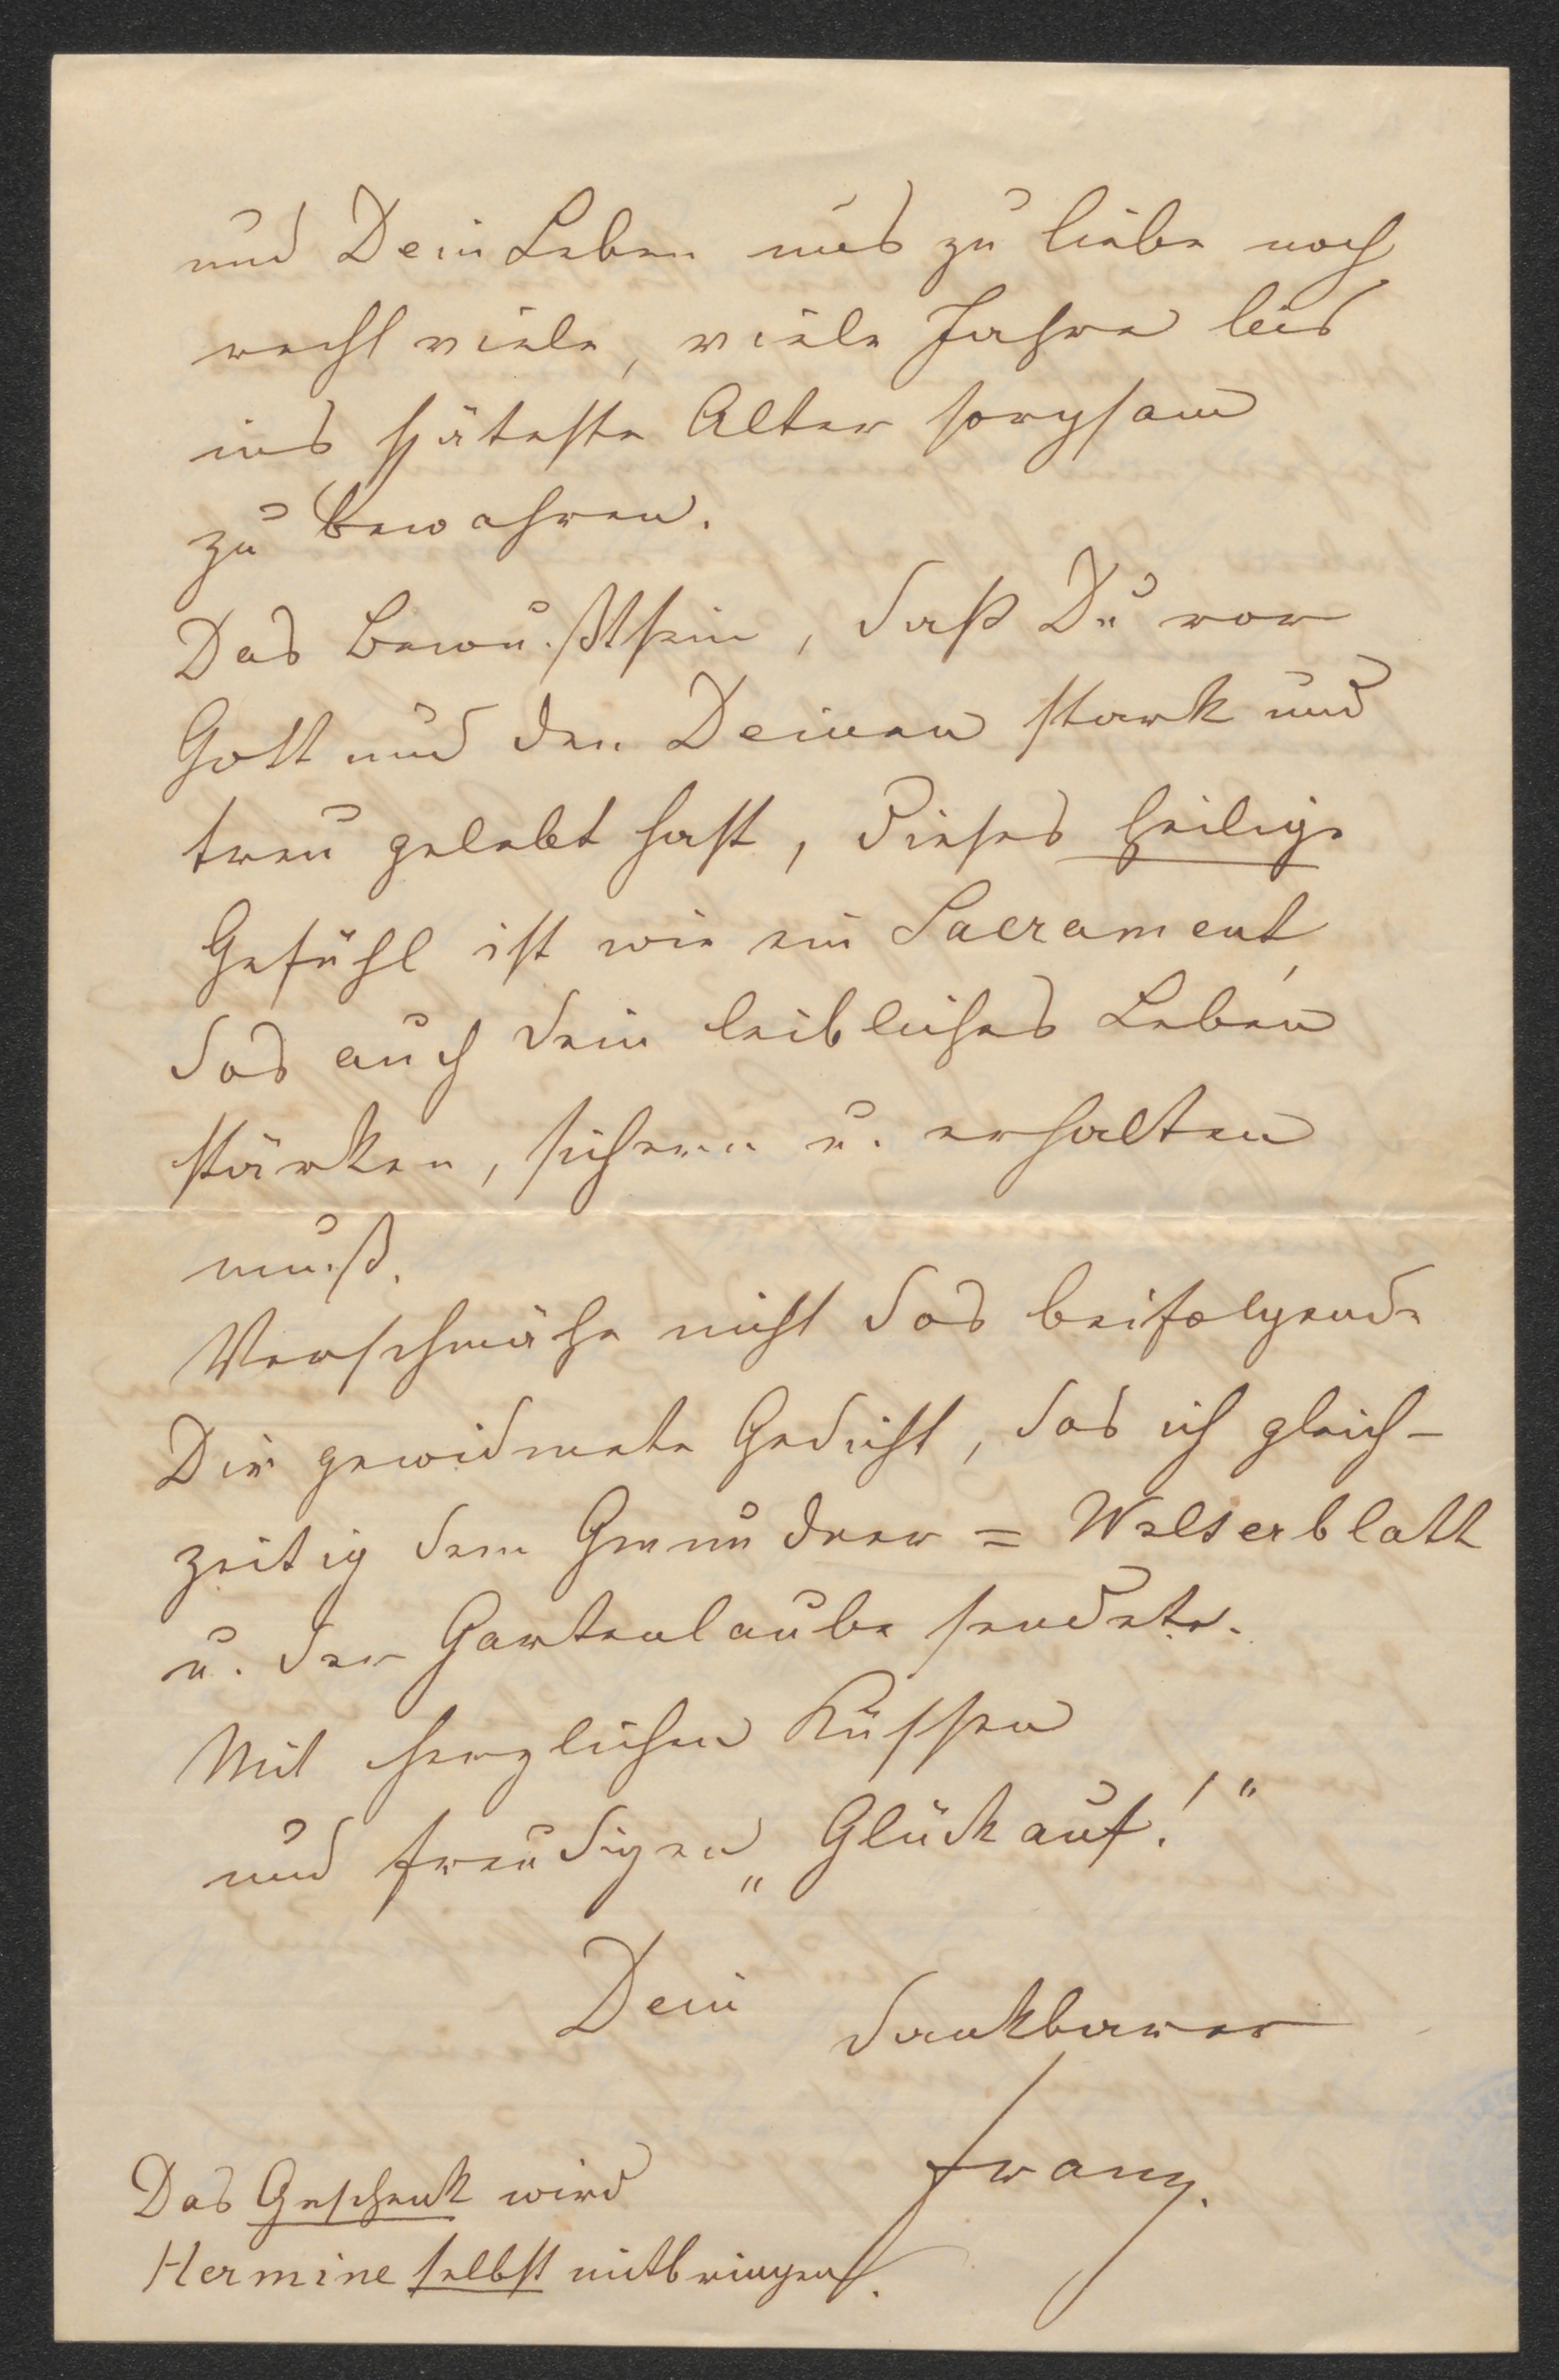 und Dein Leben uns zu liebe noch
recht viele, viele Jahre bis
ins späteste Alter sorgsam
zu bewahren.
Das Bewußtsein, daß Du vor
Gott und den Deinen stark und
treu gelebt hast, dieses heilige
Gefühl ist wie ein Sacrament,
das auch dein leibliches Leben
stärken, sichern u. erhalten
muß.
Verschmähe nicht das beifolgende
Dir gewidmete Gedicht, das ich gleich-
zeitig dem Gmundner = Welserblatt
u. der Gartenlaube sendete.
Mit herzlichen Küssen
und freudigen „Glück auf!"
Dein dankbarer
Franz.
Das Geschenk wird
Hermine selbst mitbringen.